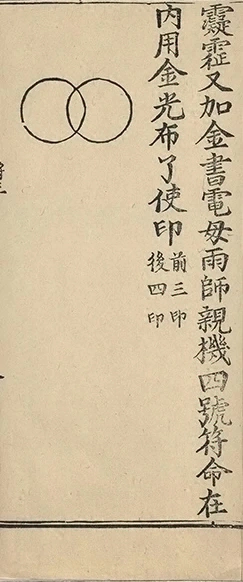 霳霔又加金書電母雨師親機四號符命在
內用金光布了使印
前三印
後四印